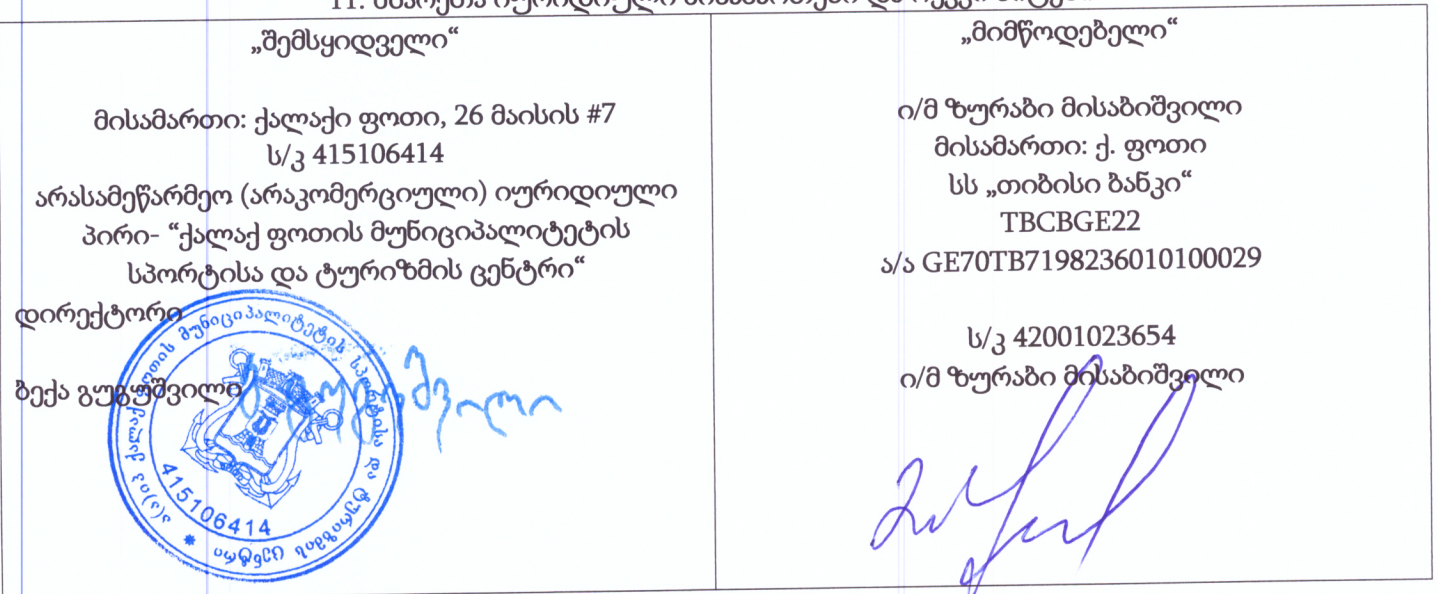 „შემსყიდველი“
მისამართი: ქალაქი ფოთი, 26 მაისის #7
ს/კ 415106414
არასამეწარმეო (არაკომერციული) იურიდიული
პირი- “ქალაქ ფოთის მუნიციპალიტეტის
სპორტისა და ტურიზმის ცენტრი“
დირექტორი
ბექა გუგუშვილი
ა(ა)იპ ქალაქ ფოთის მუნიციპალიტეტის სპორტისა და ტურიზმის ცენტრი
415106414
„მიმწოდებელი“
ი/მ ზურაბი მისაბიშვილი
მისამართი: ქ. ფოთი
სს „თიბისი ბანკი“
TBCBGE22
ა/ა GE70TB7198236010100029
ს/კ 42001023654
ი/მ ზურაბი მისაბიშვილი